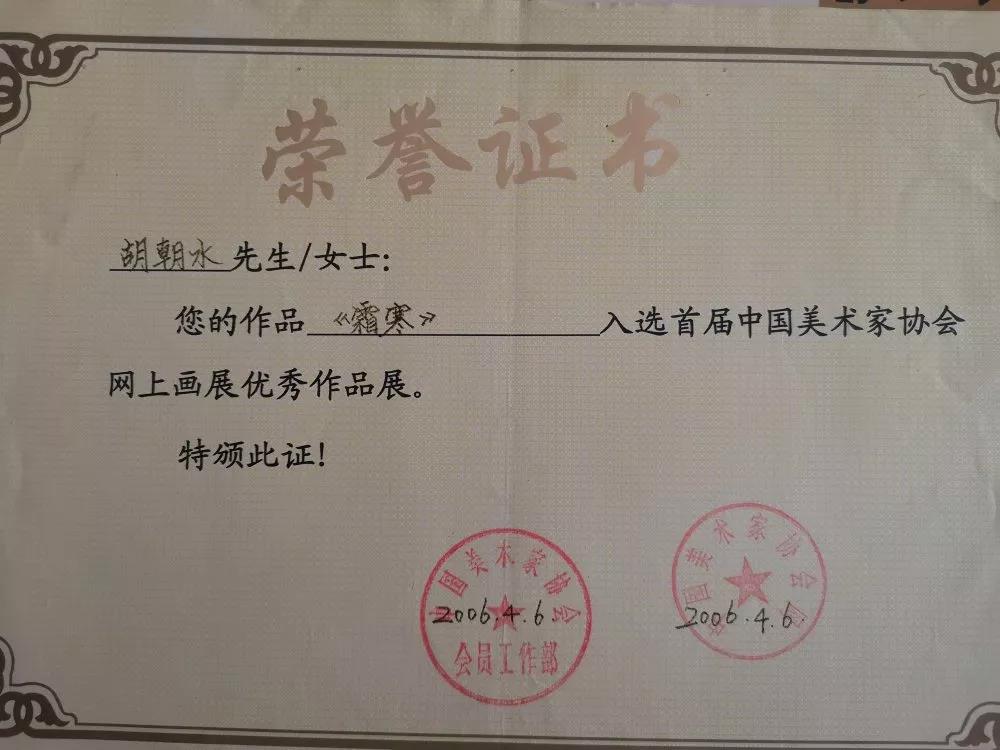 荣誉证书
胡朝水先生/女士:
您的作品《霜寒》入选首届中国美术家协会
网上画展优秀作品展。
特颁此证!
中国美术家协会
2006.4.6
会员工作部
国美术家协会
2006.4.6.